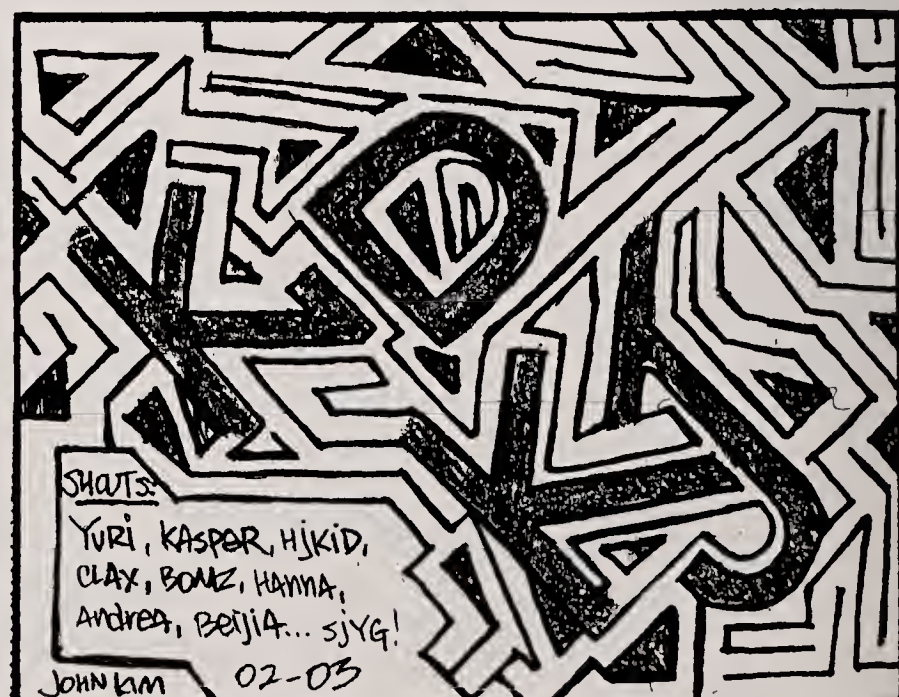 SHOUTS:
YURi, KAsPeR, HjKiD,
CLAX, BOMZ, HANNA,
Andrea, Beijia... sjYG!
JOHN KIM 02-03